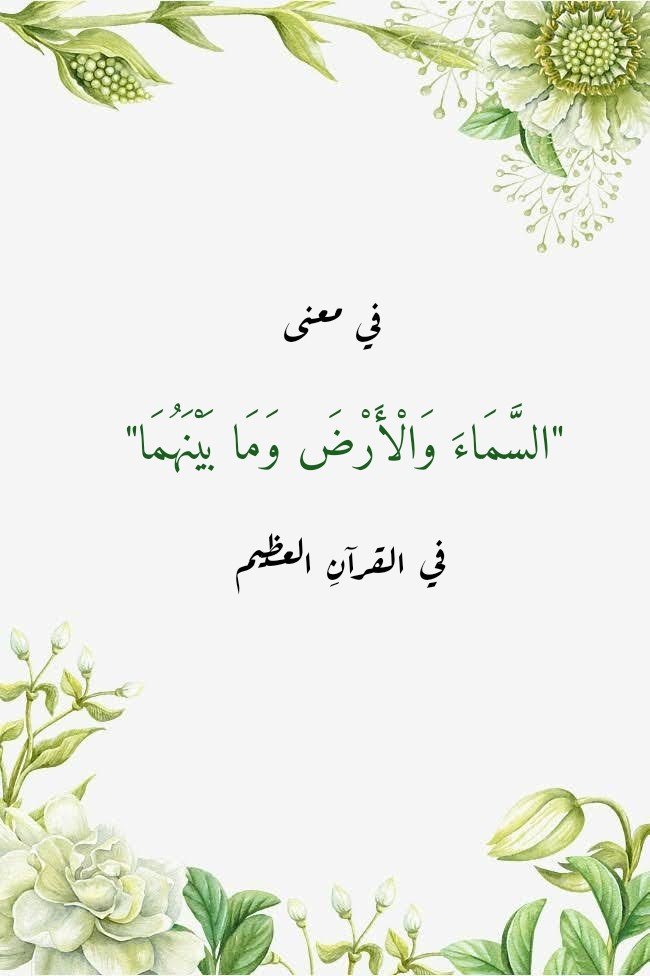 في معنى
"السَّمَاءَ وَالْأَرْضَ وَمَا بَيْنَهُمَا"
في القرآنِ العظيم